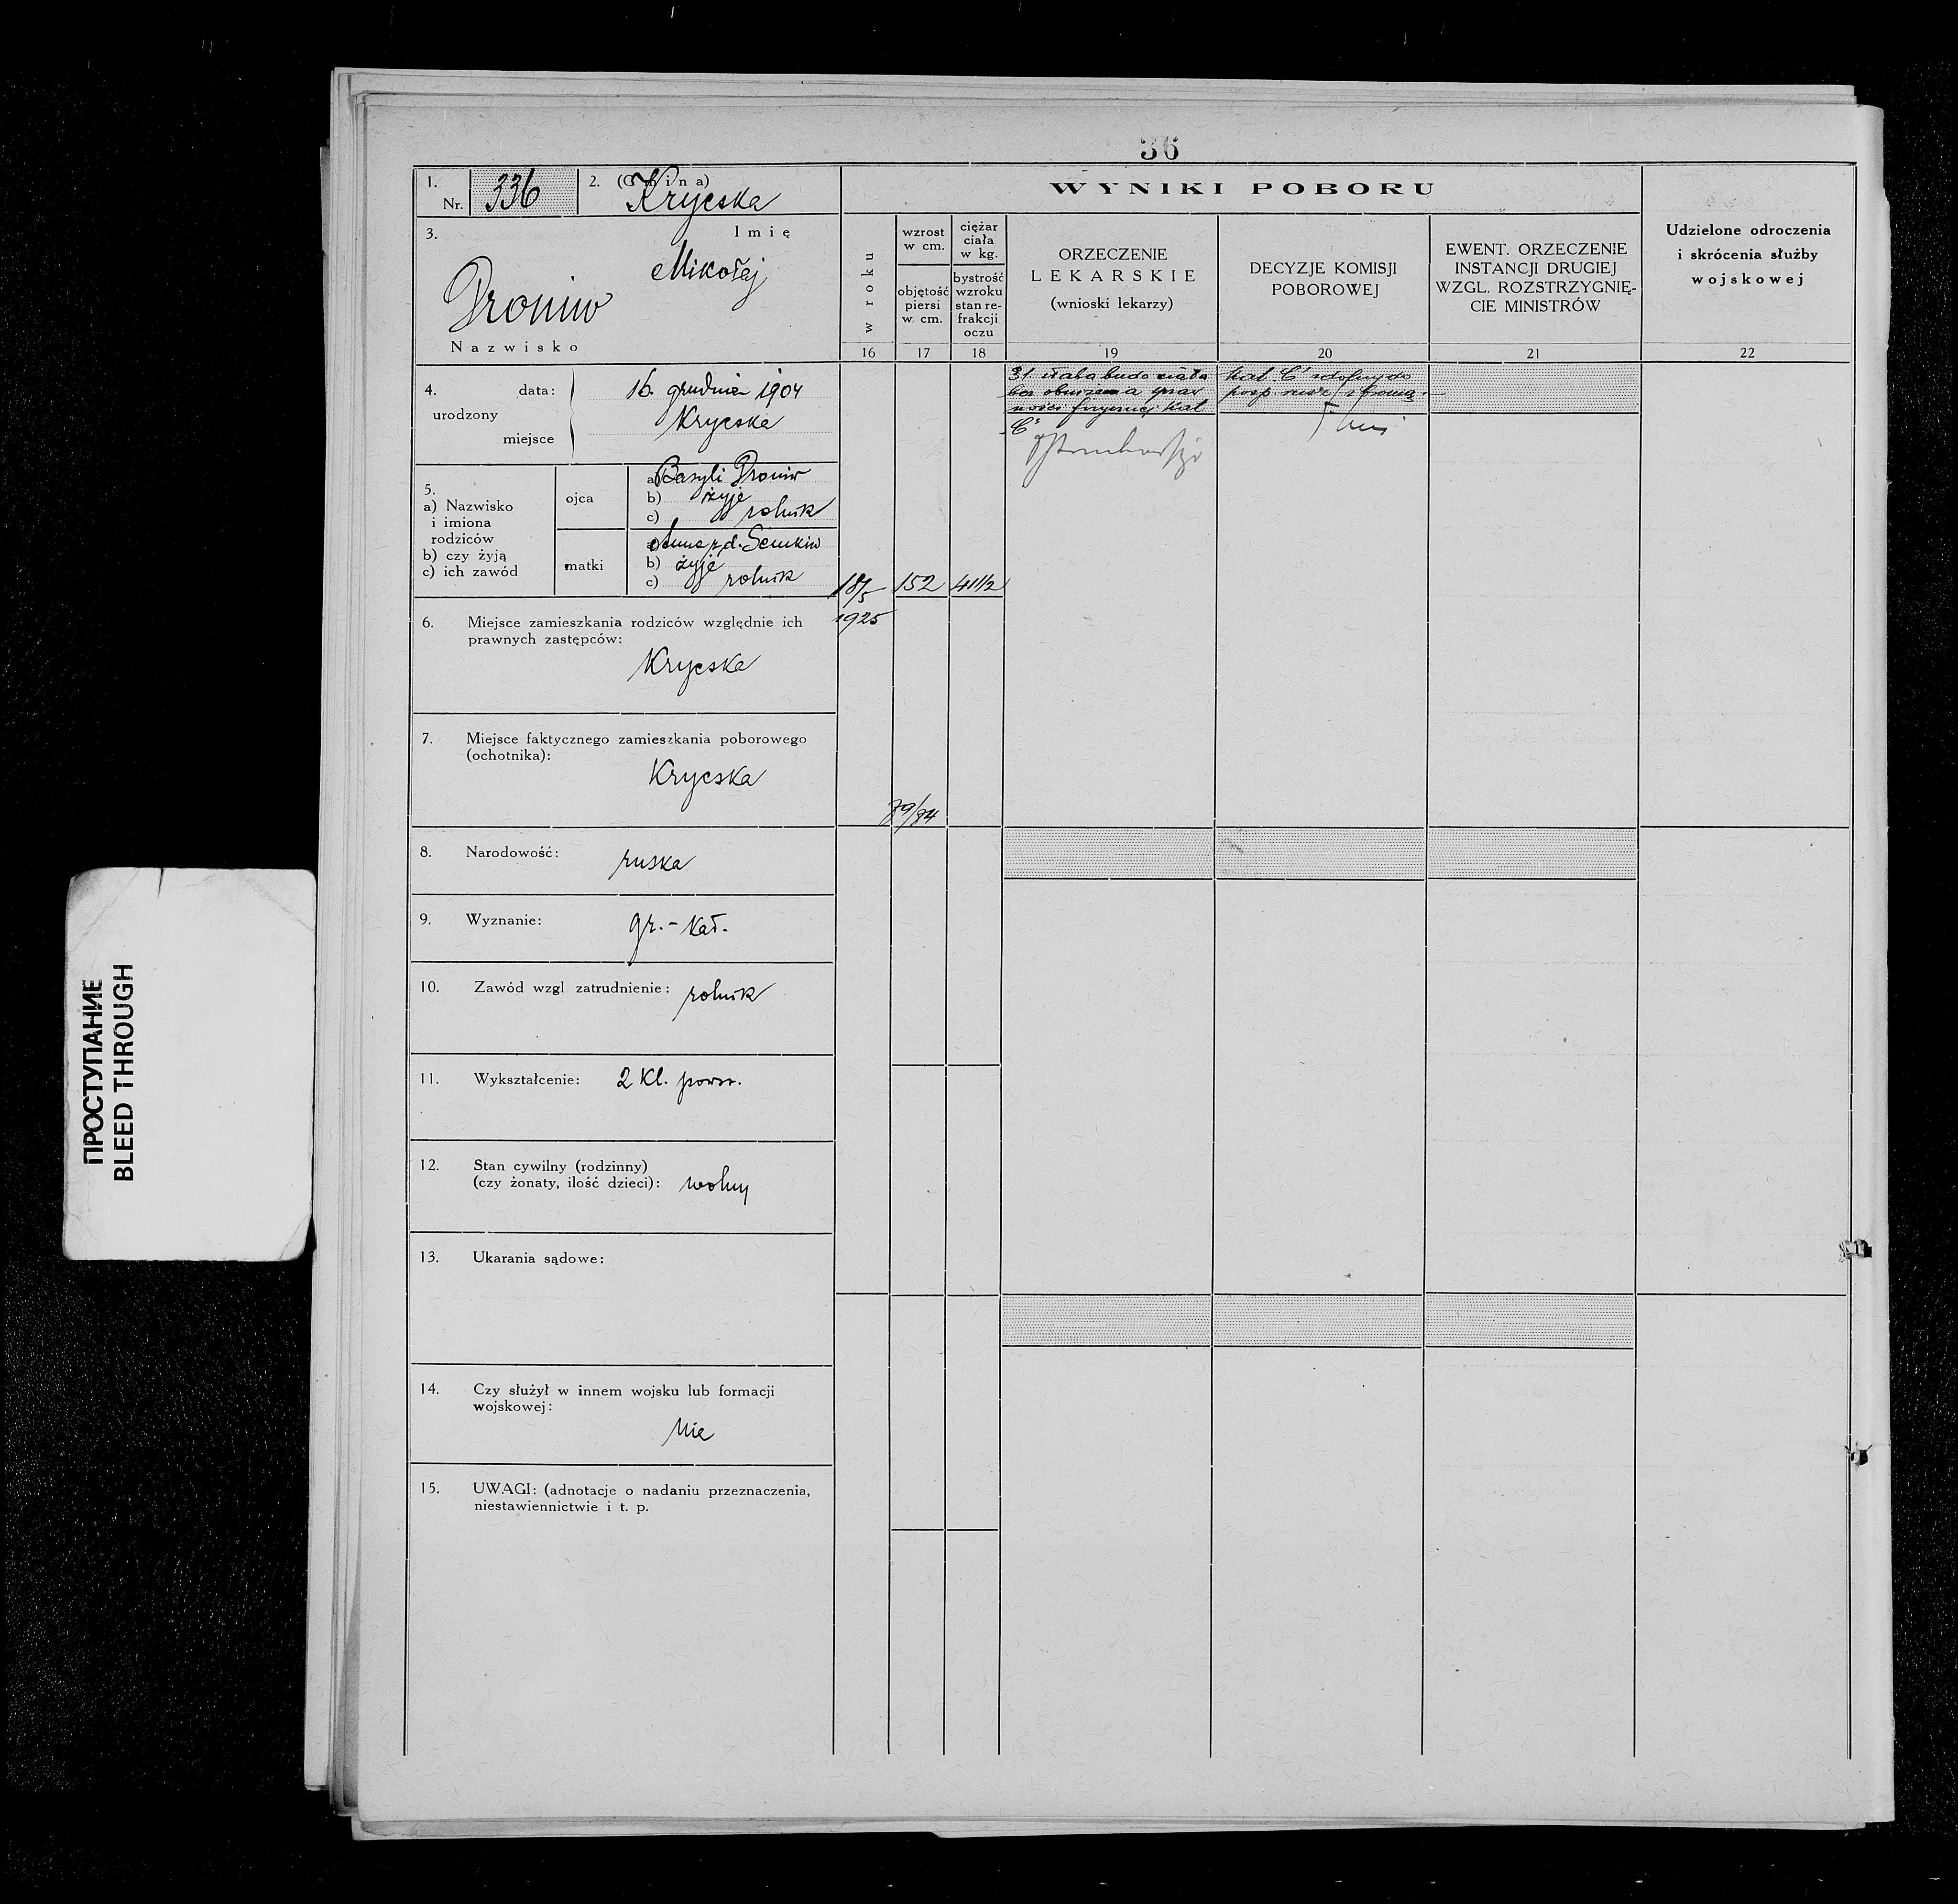 36
1. Nr. 336
2. (Gmina) Krycska
WYNIKI POBORU
3. Imię
Mikołaj
Proniw
Nazwisko
w roku
wzrost w cm.
objętość piersi w cm.
ciężar ciała w kg.
bystrość wzroku stan refrakcji oczu
ORZECZENIE
LEKARSKIE
(wnioski lekarzy)
DECYZJE KOMISJI
POBOROWEJ
EWENT. ORZECZENIE
INSTANCJI DRUGIEJ
WZGL. ROZSTRZYGNIĘ-
CIE MINISTRÓW
Udzielone odroczenia
i skrócenia służby
wojskowej
16 17 18 19 20 21 22
4. urodzony
data: 16. grudnia 1904
miejsce Krycska
31. słaba budo ciała
bez obniżenia spraw
ności fizycznej kat
C
kat. C zdolny do
posp. rusz. z bronią.
5.
a) Nazwisko
i imiona
rodziców
b) czy żyją
c) ich zawód
ojca
a) Bazyli Proniw
b) żyje
c) rolnik
matki
a) Anna z d. Senkiw
b) żyje
c) rolnik
18/5
1925
152
41 1/2
79/84
6. Miejsce zamieszkania rodziców względnie ich
prawnych zastępców:
Krycska
7. Miejsce faktycznego zamieszkania poborowego
(ochotnika):
Krycska
8. Narodowość: ruska
9. Wyznanie: gr.-kat.
10. Zawód wzgl zatrudnienie: rolnik
11. Wykształcenie: 2 kl. powsz.
12. Stan cywilny (rodzinny)
(czy żonaty, ilość dzieci): wolny
13. Ukarania sądowe:
14. Czy służył w innem wojsku lub formacji
wojskowej:
Nie
15. UWAGI: (adnotacje o nadaniu przeznaczenia,
niestawiennictwie i t. p.
ПРОСТУПАНИЕ
BLEED THROUGH